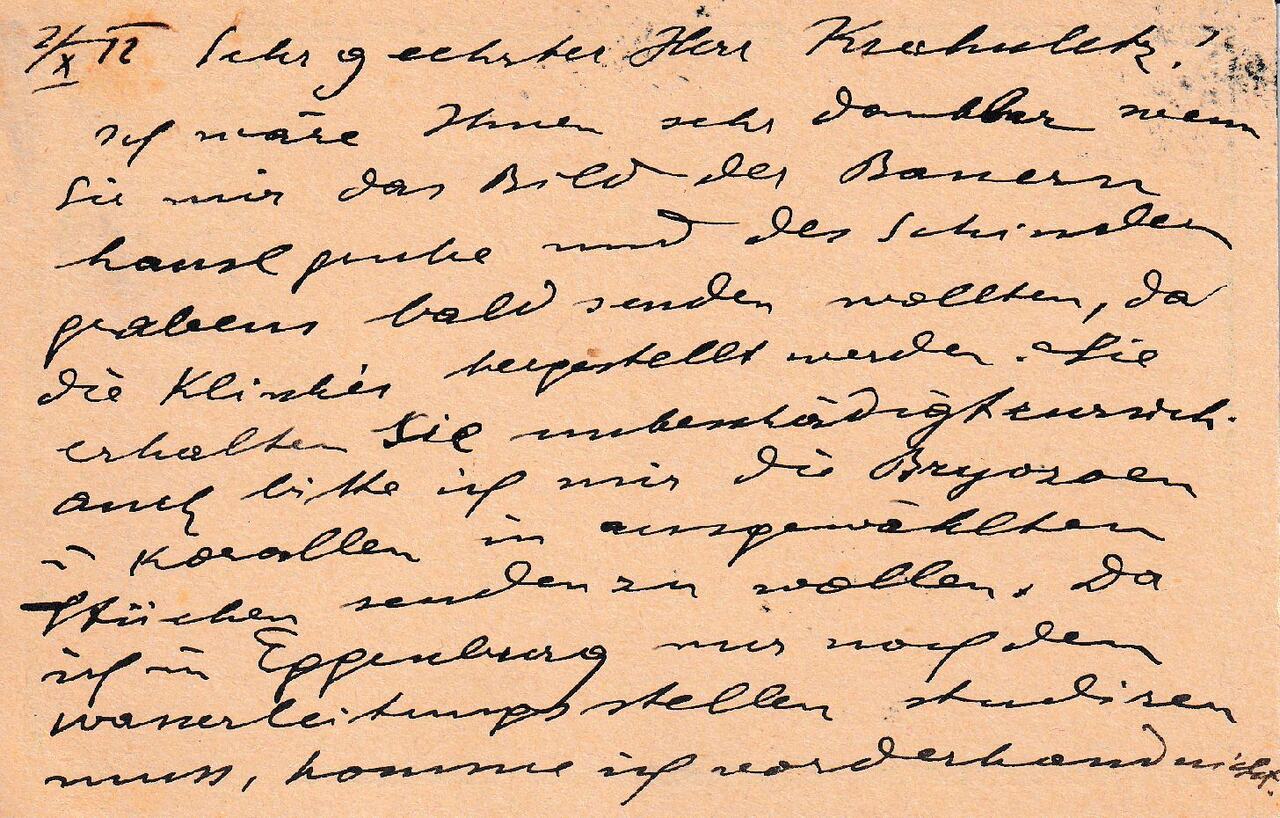 2/X 12 Sehr geehrter Herr Krahuletz!
ich wäre Ihnen sehr dankbar wenn
Sie mir das Bild der Bauern
hanslgrube und des Schinder
grabens bald senden wollten, da
die Klischés hergestellt werden. Sie
erhalten Sie unbeschädigt zurück.
auch bitte ich mir die Bryozoen
u Korallen in ausgewählten
Stücken senden zu wollen. Da
ich in Eggenburg nur noch den
wasserleitungsstellen studiren
muss, komme ich vorderhand nicht.